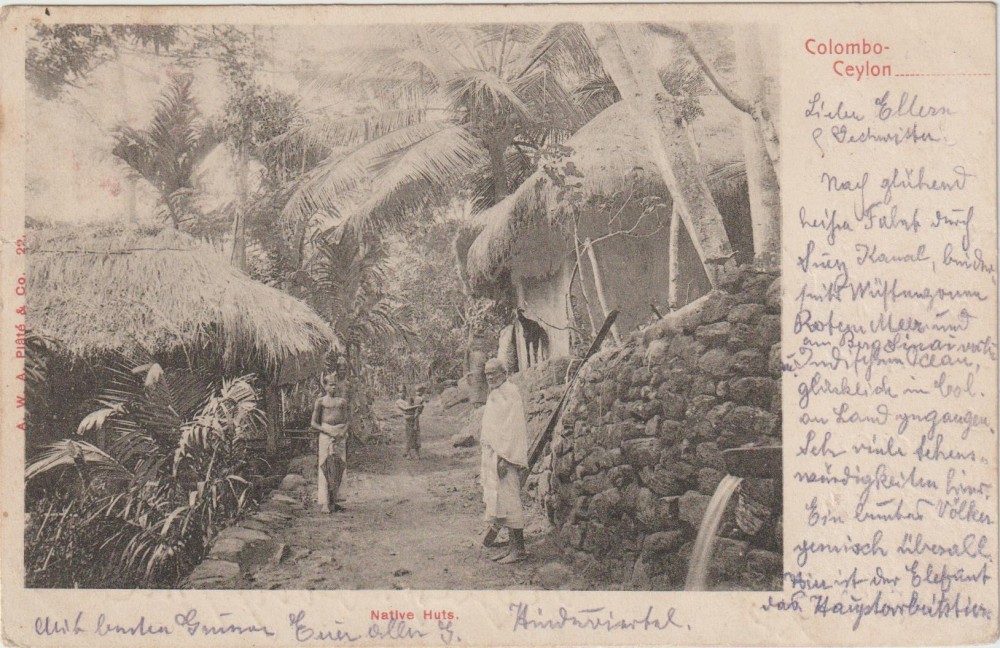 Colombo-
Ceylon
Liebe Eltern
& Geschwister.
Nach glühend
heißer Fahrt durch
Suez Kanal, beider
seits Wüstenzonen
Rotem Meer und
am Berg Sinai vorb.
Indischem Ocean,
glücklich in Col.
an Land gegangen.
Seh viele Sehens-
würdigkeiten hier.
Ein buntes Völker
gemisch überall.
Hier ist der Elephant
das Hauptarbeitstier
A. W. A. Plâté & Co. 22.
Native Huts.
Mit besten Grüssen Euer
Hinduviertel.